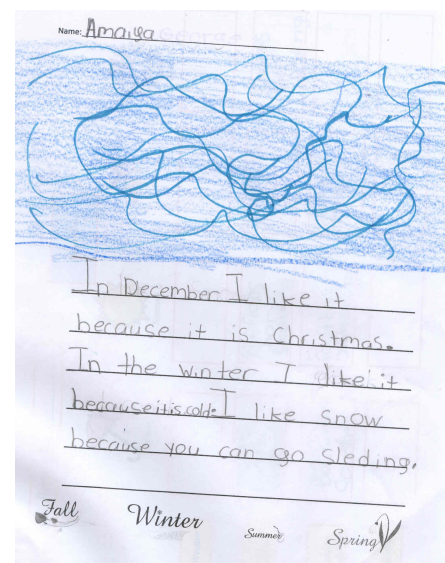 Name: Amaiya
In December I like it
because it is Christmas.
In the winter I like it
because it is cold. I like snow
because you can go sleding.
Fall Winter Summer Spring